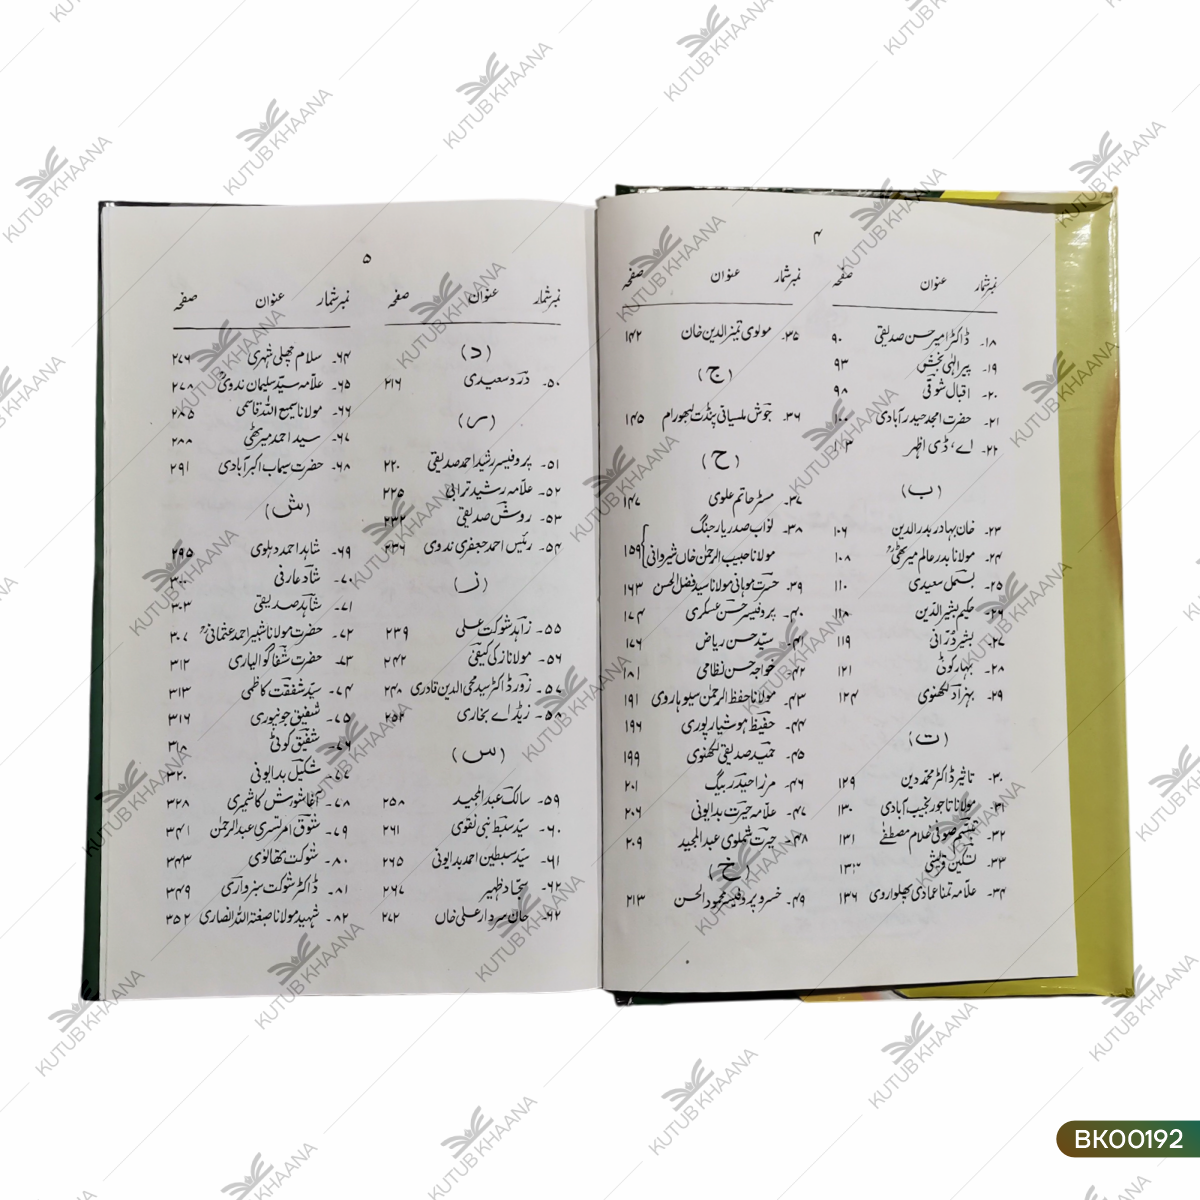 ۴
نمبر شمار عنوان صفحہ
۱۸۔ ڈاکٹر امیر حسن صدیقی ۹۰
۱۹۔ پیر الٰہی بخش ۹۳
۲۰۔ اقبال شوقی ۹۸
۲۱۔ حضرت امجد حیدرآبادی ۱۰۰
۲۲۔ اے، ڈی اظہر ۱۰۳
(ب)
۲۳۔ خان بہادر بدرالدین ۱۰۶
۲۴۔ مولانا بدر عالم میرٹھیؒ ۱۰۸
۲۵۔ بسمل سعیدی ۱۱۰
۲۶۔ حکیم بشیر الدین ۱۱۸
۲۷۔ بشیر درّانی ۱۱۹
۲۸۔ بہار کوٹی ۱۲۱
۲۹۔ بہزاد لکھنوی ۱۲۴
(ت)
۳۰۔ تاثیر ڈاکٹر محمد دین ۱۲۹
۳۱۔ مولانا تاجور نجیب آبادی ۱۳۰
۳۲۔ تبسّم صوفی غلام مصطفےٰ ۱۳۱
۳۳۔ تسکین قریشی
۳۴۔ علّامہ تمنا عمادی پھلواروی ۱۳۶
نمبر شمار عنوان صفحہ
۳۵۔ مولوی تمیز الدین خان ۱۴۲
(ج)
۳۶۔ جوش ملسیانی پنڈت لبھورام ۱۴۵
(ح)
۳۷۔ مسٹر حاتم علوی ۱۴۷
۳۸۔ نواب صدر یار جنگ
مولانا حبیب الرحمٰن خاں شیروانی ۱۵۹
۳۹۔ حسرت موہانی مولانا سید فضل الحسن ۱۶۳
۴۰۔ پروفیسر حسن عسکری ۱۷۴
۴۱۔ سیّد حسن ریاض ۱۷۶
۴۲۔ خواجہ حسن نظامی ۱۸۱
۴۳۔ مولانا حفظ الرحمٰن سیوہاروی ۱۹۱
۴۴۔ حفیظ ہوشیارپوری ۱۹۶
۴۵۔ حمید صدیقی لکھنوی ۱۹۹
۴۶۔ مرزا حیدر بیگ ۲۰۱
۴۷۔ علّامہ حیرت بدایونی ۲۰۶
۴۸۔ حیرت شملوی عبد المجید ۲۰۹
(خ)
۴۹۔ خسرو پروفیسر محمود الحسن ۲۱۳
۵
نمبر شمار عنوان صفحہ
(د)
۵۰۔ درد سعیدی ۲۱۶
(ر)
۵۱۔ پروفیسر رشید احمد صدیقی ۲۲۰
۵۲۔ علّامہ رشید ترابی ۲۲۵
۵۳۔ روش صدیقی ۲۳۲
۵۴۔ رئیس احمد جعفری ندوی ۲۳۶
(ز)
۵۵۔ زاہد شوکت علی ۲۳۹
۵۶۔ مولانا زکی کیفی ۲۴۲
۵۷۔ زور ڈاکٹر سید محی الدین قادری ۲۴۸
۵۸۔ زیڈ اے بخاری ۲۵۲
(س)
۵۹۔ سالک عبد المجید ۲۵۸
۶۰۔ سیّد سبط نبی نقوی ۲۶۱
۶۱۔ سیّد سبطین احمد بدایونی ۲۶۵
۶۲۔ سجّاد ظہیر ۲۶۷
۶۲۔ خان سردار علی خاں ۲۷۲
نمبر شمار عنوان صفحہ
۶۴۔ سلام مچھلی شہری ۲۷۶
۶۵۔ علّامہ سیّد سلیمان ندویؒ ۲۷۸
۶۶۔ مولانا سمیع اللہ قاسمی ۲۸۵
۶۷۔ سید احمد میرٹھی ۲۸۸
۶۸۔ حضرت سیماب اکبرآبادی ۲۹۱
(ش)
۶۹۔ شاہد احمد دہلوی ۲۹۵
۷۰۔ شاد عارفی
۷۱۔ شاہد صدیقی ۳۰۳
۷۲۔ حضرت مولانا شبیر احمد عثمانیؒ ۳۰۷
۷۳۔ حضرت شفا گوالیاری ۳۱۲
۷۴۔ سیّد شفقت کاظمی ۳۱۳
۷۵۔ شفیق جونپوری ۳۱۶
۷۶۔ شفیق کوٹی ۳۱۸
۷۷۔ شکیل بدایونی ۳۲۰
۷۸۔ آغا شورش کاشمیری ۳۲۸
۷۹۔ شوق امرتسری عبد الرحمٰن ۳۴۱
۸۰۔ شوکت تھانوی ۳۴۳
۸۱۔ ڈاکٹر شوکت سبزواری ۳۴۹
۸۲۔ شہید مولانا صبغۃ اللہ انصاری ۳۵۲
KUTUB KHAANA
BK00192